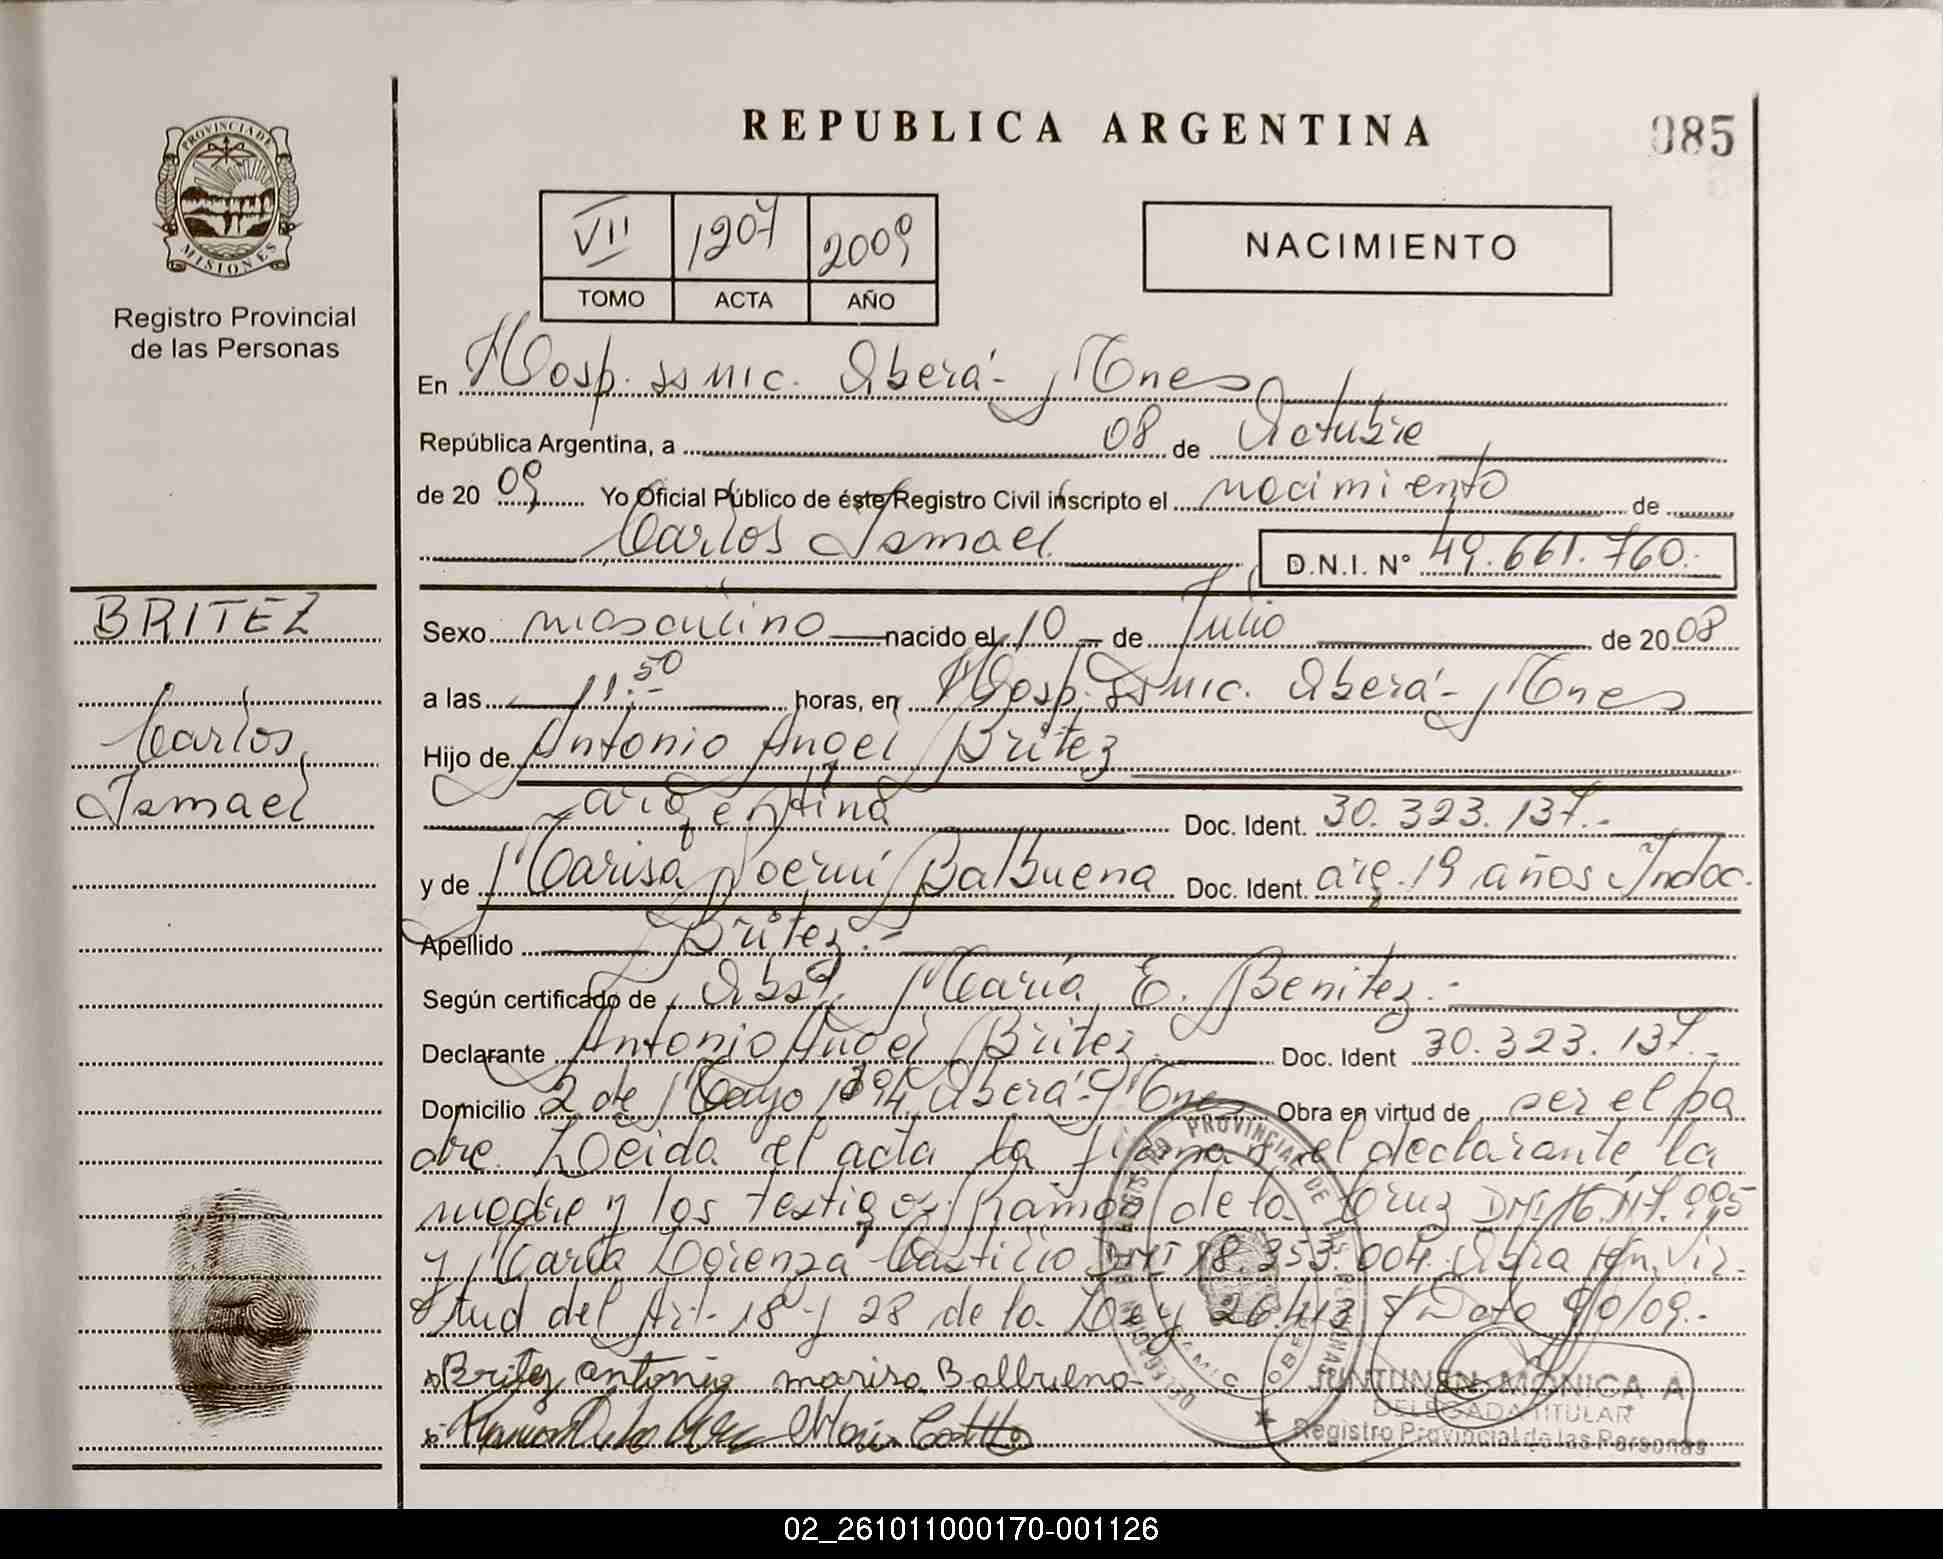 PROVINCIA DE
MISIONES
Registro Provincial
de las Personas
REPUBLICA ARGENTINA
085
VII 1207 2009
TOMO ACTA AÑO
NACIMIENTO
En Hosp. ssmic. Oberá - Mnes
República Argentina, a 08 de Octubre
de 2009 Yo Oficial Público de éste Registro Civil inscripto el nacimiento de
Carlos Ismael
D.N.I. Nº 49.661.760.-
BRITEZ
Carlos
Ismael
Sexo masculino nacido el 10 de Julio de 2008
a las 11:50 horas, en Hosp. ssmic. Oberá - Mnes
Hijo de Antonio Angel Britez
argentina Doc. Ident. 30.323.137.-
y de Marisa Noemí Balbuena Doc. Ident. arg. 19 años Indoc.
Apellido Britez.-
Según certificado de Obst. María E. Benitez.-
Declarante Antonio Angel Britez Doc. Ident 30.323.137.-
Domicilio 2 de Mayo Oberá - Mnes Obra en virtud de ser el pa
dre. Leida el acta la firman el declarante, la
madre y los testigos: Ramon de la Cruz DNI
y María Lorenza Castillo DNI 18.353.004. Obra en vir-
tud del Art. 18 y 28 de la Ley 26.413 y Dcto 90/09.-
Britez antonio marisa Balbuena
REGISTRO PROVINCIAL DE LAS PERSONAS
DELEGACION
OBERA
JUNTUNEN MONICA A
DELEGADA TITULAR
Registro Provincial de las Personas
02_261011000170-001126